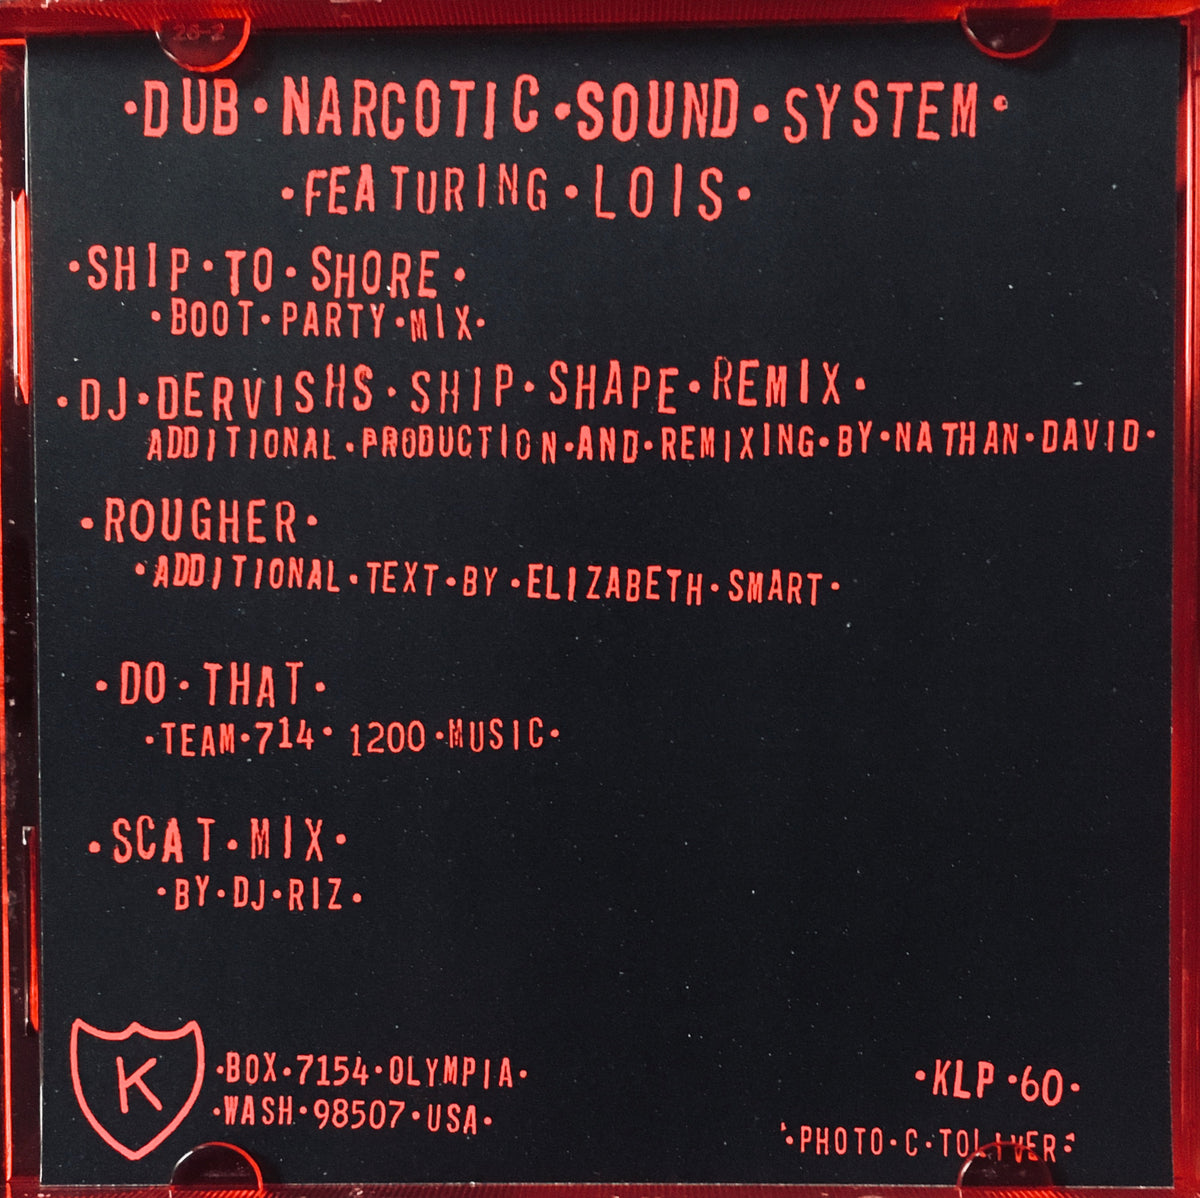 ·DUB·NARCOTIC·SOUND·SYSTEM·
·FEATURING·LOIS·
·SHIP·TO·SHORE·
·BOOT·PARTY·MIX·
·DJ·DERVISHS·SHIP·SHAPE·REMIX·
ADDITIONAL·PRODUCTION·AND·REMIXING·BY·NATHAN·DAVID·
·ROUGHER·
·ADDITIONAL·TEXT·BY·ELIZABETH·SMART·
·DO·THAT·
·TEAM·714· 1200·MUSIC·
·SCAT·MIX·
·BY·DJ·RIZ·
K
·BOX·7154·OLYMPIA·
·WASH·98507·USA·
·KLP·60·
·PHOTO·C·TOLIVER·